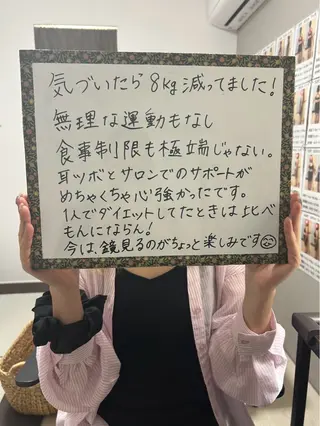 気づいたら8kg減ってました!
無理な運動もなし
食事制限も極端じゃない。
耳ツボとサロンでのサポートが
めちゃくちゃ心強かったです。
1人でダイエットしてたときは比べ
もんにならん!
今は、鏡見るのがちょっと楽しみです